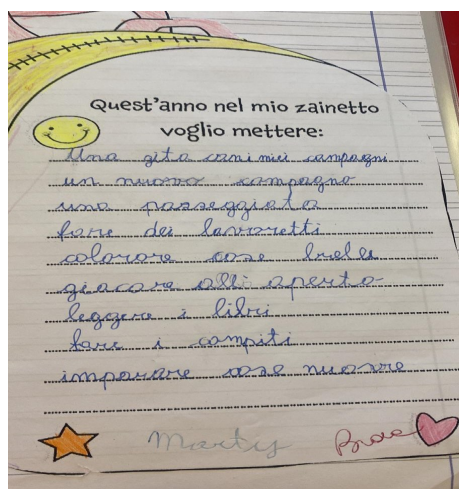 Quest'anno nel mio zainetto
voglio mettere:
Una gita con i miei compagni
un nuovo compagno
una passeggiata
fare dei lavoretti
colorare cose belle
giocare all'aperto
leggere i libri
fare i compiti
imparare cose nuove
Marty